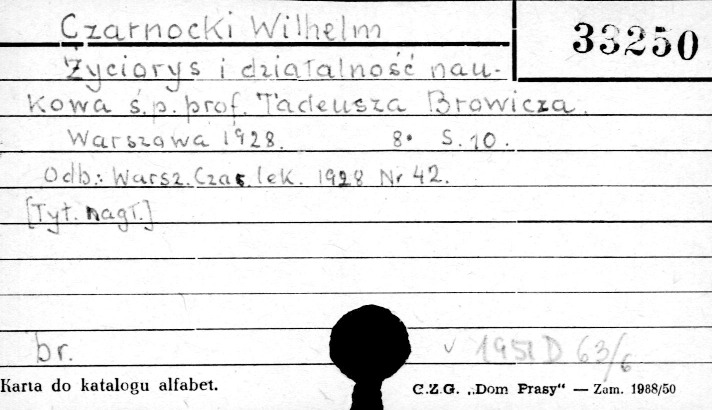 Czarnocki Wilhelm
33250
Życiorys i działalność nau-
kowa ś.p. prof. Tadeusza Browicza.
Warszawa 1928. 8° S. 10.
Odb.: Warsz. Czas. lek. 1928 Nr 42.
[Tyt. nagł.]
br. v 1951 D 63/6
Karta do katalogu alfabet. C.Z.G. „Dom Prasy“ — Zam. 1988/50